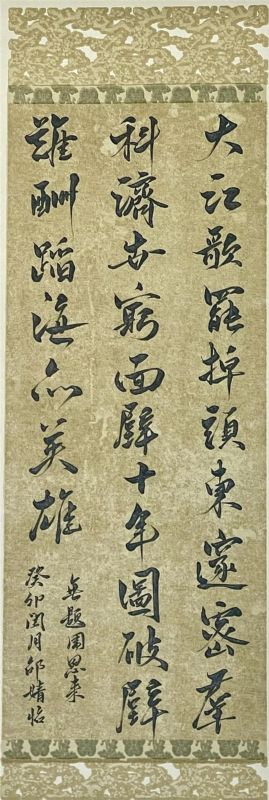 大江歌罷掉頭東邃密羣
科濟世窮面壁十年圖破壁
難酬蹈海亦英雄
無題周恩来
癸卯閏月邱婧临